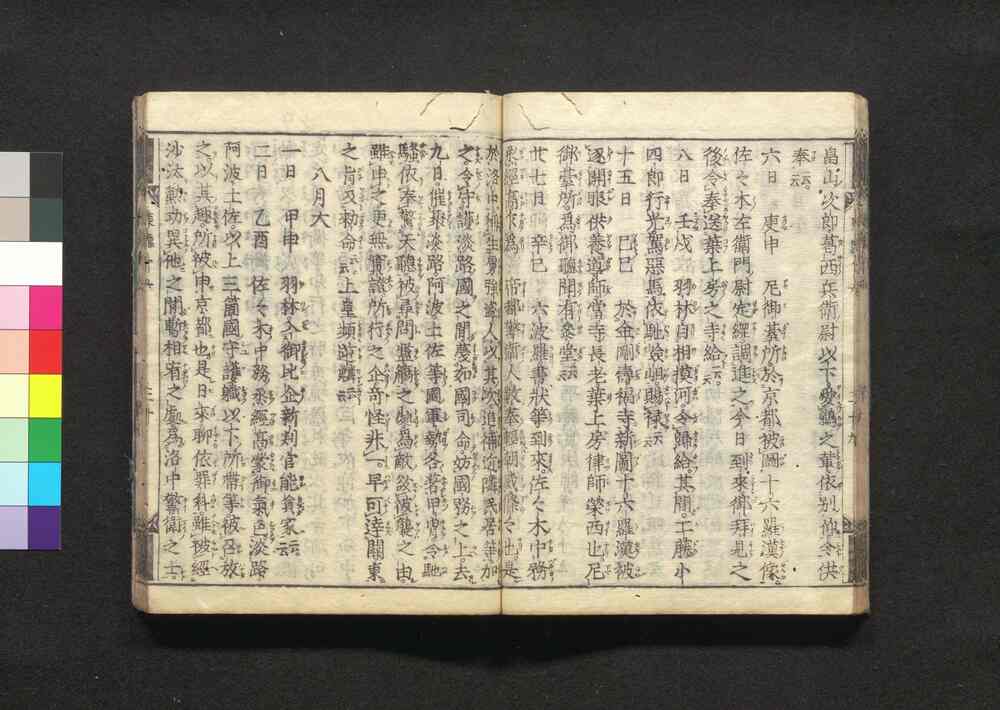 畠山次郎葛西兵衛尉以下愛翫之輩依別仰令供
奉云云
六日 庚申 尼御臺所於京都被圖十六羅漢像
佐々木左衛門尉定綱調進之今日到來御拜見之
後令奉送葉上房之寺給云云
八日 壬戌 羽林自相摸河令歸給其間工藤小
四郎行光駕惡馬依馳嶮岨賜禄云云
十五日 己巳 於金剛壽福寺新圖十六羅漢被
遂開眼供養導師當寺長老葉上房律師榮西也尼
御臺所為御聽聞有參堂云云
廿七日 辛巳 六波羅書状等到來佐々木中務
丞經高作為帝都警衛人數奉輕朝威條々也是
於洛中強盜人以其次追捕近隣民屋等加
之令守護淡路國之間蔑如國司命妨國務之上去
九日催聚淡路阿波土佐等國軍勢各著甲冑令馳
騒依奉驚天聽被尋問濫觴之處為敵欲被襲之由
雖申之更無實證所行之企奇怪非一早可達關東
之旨及勅命云云上皇頻逆鱗云云
八月大
一日 甲申 羽林入御比企新判官能員家云云
二日 乙酉 佐々木中務丞經高蒙御氣色淡路
阿波土佐以上三箇國守護職以下所帶等被召放
之以其趣所被申京都也是日來聊依罪科雖被經
沙汰勲功異他之間暫相宥之處為洛中警衛之士